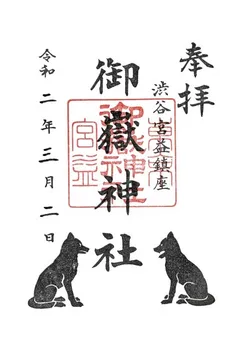 奉拝
渋谷宮益鎮座
御嶽神社
宮益
令和二年三月二日